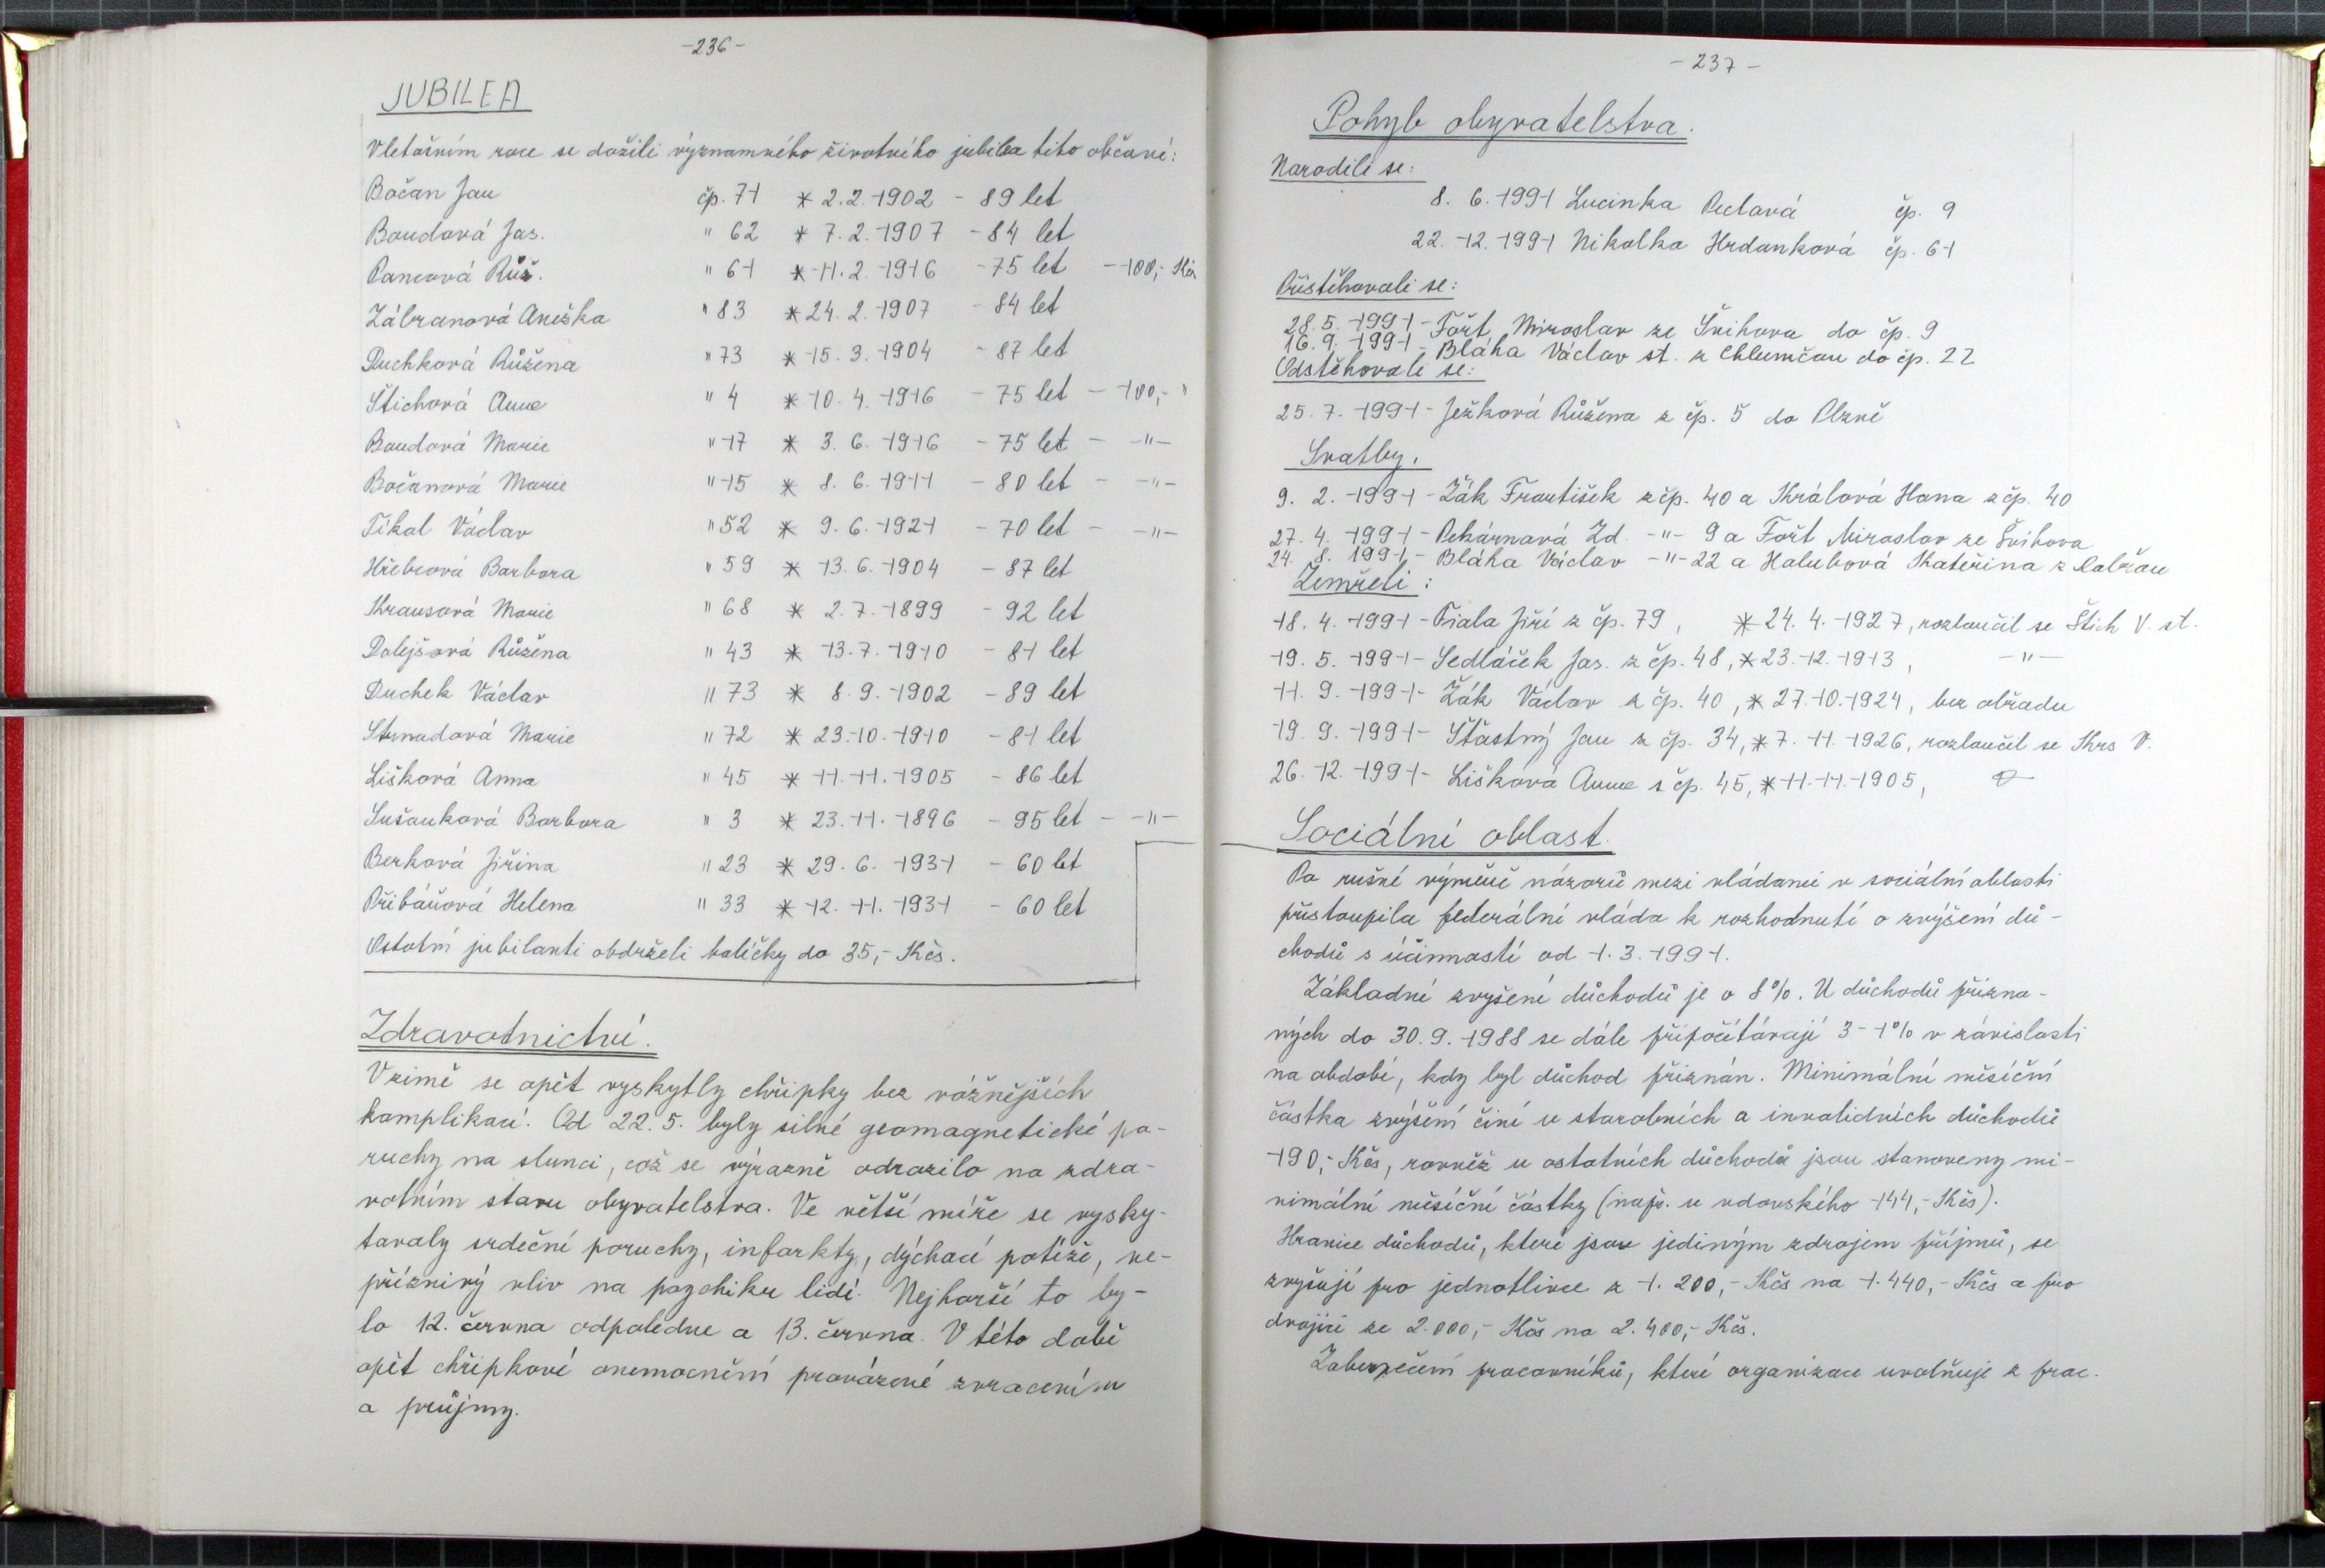 -236-
JUBILEA
Vletošním roce se dožili významného životního jubilea tito občané:
Bočan Jan čp. 71 * 2.2.1902 - 89 let
Boudová Jas. " 62 * 7.2.1907 - 84 let
Pancová Růž. " 61 * 11.2.1916 - 75 let - 100,- Kčs
Zábranová Anežka " 83 * 24.2.1907 - 84 let
Duchková Růžena " 73 * 15.3.1904 - 87 let
Štichová Anna " 4 * 10.4.1916 - 75 let - 100,- "
Boudová Marie " 17 * 3.6.1916 - 75 let - -"-
Bočanová Marie " 15 * 8.6.1911 - 80 let - -"-
Tikal Václav " 52 * 9.6.1921 - 70 let - -"-
Hřebcová Barbora " 59 * 13.6.1904 - 87 let
Krausová Marie " 68 * 2.7.1899 - 92 let
Dolejšová Růžena " 43 * 13.7.1910 - 81 let
Duchek Václav " 73 * 8.9.1902 - 89 let
Strnadová Marie " 72 * 23.10.1910 - 81 let
Lišková Anna " 45 * 11.11.1905 - 86 let
Sušanková Barbora " 3 * 23.11.1896 - 95 let - -"-
Berková Jiřina " 23 * 29.6.1931 - 60 let
Přibáňová Helena " 33 * 12.11.1931 - 60 let
Ostatní jubilanti obdrželi balíčky do 35,- Kčs.
Zdravotnictví.
V zimě se opět vyskytly chřipky bez vážnějších
komplikací. Od 22.5. byly silné geomagnetické po-
ruchy na slunci, což se výrazně odrazilo na zdra-
votním stavu obyvatelstva. Ve větší míře se vysky-
tovaly srdeční poruchy, infarkty, dýchací potíže, ne-
příznivý vliv na psychiku lidí. Nejhorší to by-
lo 12. června odpoledne a 13. června. V této době
opět chřipkové onemocnění provázené zvracením
a průjmy.
-237-
Pohyb obyvatelstva.
Narodili se:
8. 6. 1991 Lucinka Peclová čp. 9
22. 12. 1991 Nikolka Hrdonková čp. 61
Přistěhovali se:
28. 5. 1991 - Fořt Miroslav ze Švihova do čp. 9
16. 9. 1991 - Bláha Václav st. z Chlumčan do čp. 22
Odstěhovali se:
25. 7. 1991 - Ježková Růžena z čp. 5 do Plzně
Svatby.
9. 2. 1991 - Žák František z čp. 40 a Králová Hana z čp. 40
27. 4. 1991 - Pekárnová Zd. -"- 9 a Fořt Miroslav ze Švihova
24. 8. 1991 - Bláha Václav -"- 22 a Holubová Kateřina z Dobřan
Zemřeli:
18. 4. 1991 - Fiala Jiří z čp. 79, * 24. 4. 1927, rozloučil se Štich V. st.
19. 5. 1991 - Sedláček Jas. z čp. 48, * 23. 12. 1913, -"-
11. 9. 1991 - Žák Václav z čp. 40, * 27. 10. 1924, bez obřadu
19. 9. 1991 - Šťastný Jan z čp. 34, * 7. 11. 1926, rozloučil se Krs V.
26. 12. 1991 - Lišková Anna z čp. 45, * 11. 11. 1905,
Sociální oblast.
Po rušné výměně názorů mezi vládami v sociální oblasti
přistoupila federální vláda k rozhodnutí o zvýšení dů-
chodů s účinností od 1. 3. 1991.
Základní zvýšení důchodů je o 8%. U důchodů přizna-
ných do 30. 9. 1988 se dále připočítávají 3 - 1% v závislosti
na období, kdy byl důchod přiznán. Minimální měsíční
částka zvýšení činí u starobních a invalidních důchodů
190,- Kčs, rovněž u ostatních důchodů jsou stanoveny mi-
nimální měsíční částky (např. u vdovského 144,- Kčs).
Hranice důchodů, které jsou jediným zdrojem příjmů, se
zvyšují pro jednotlivce z 1. 200,- Kčs na 1. 440,- Kčs a pro
dvojici ze 2.000,- Kčs na 2. 400,- Kčs.
Zabezpečení pracovníků, které organizace uvolňuje z prac.